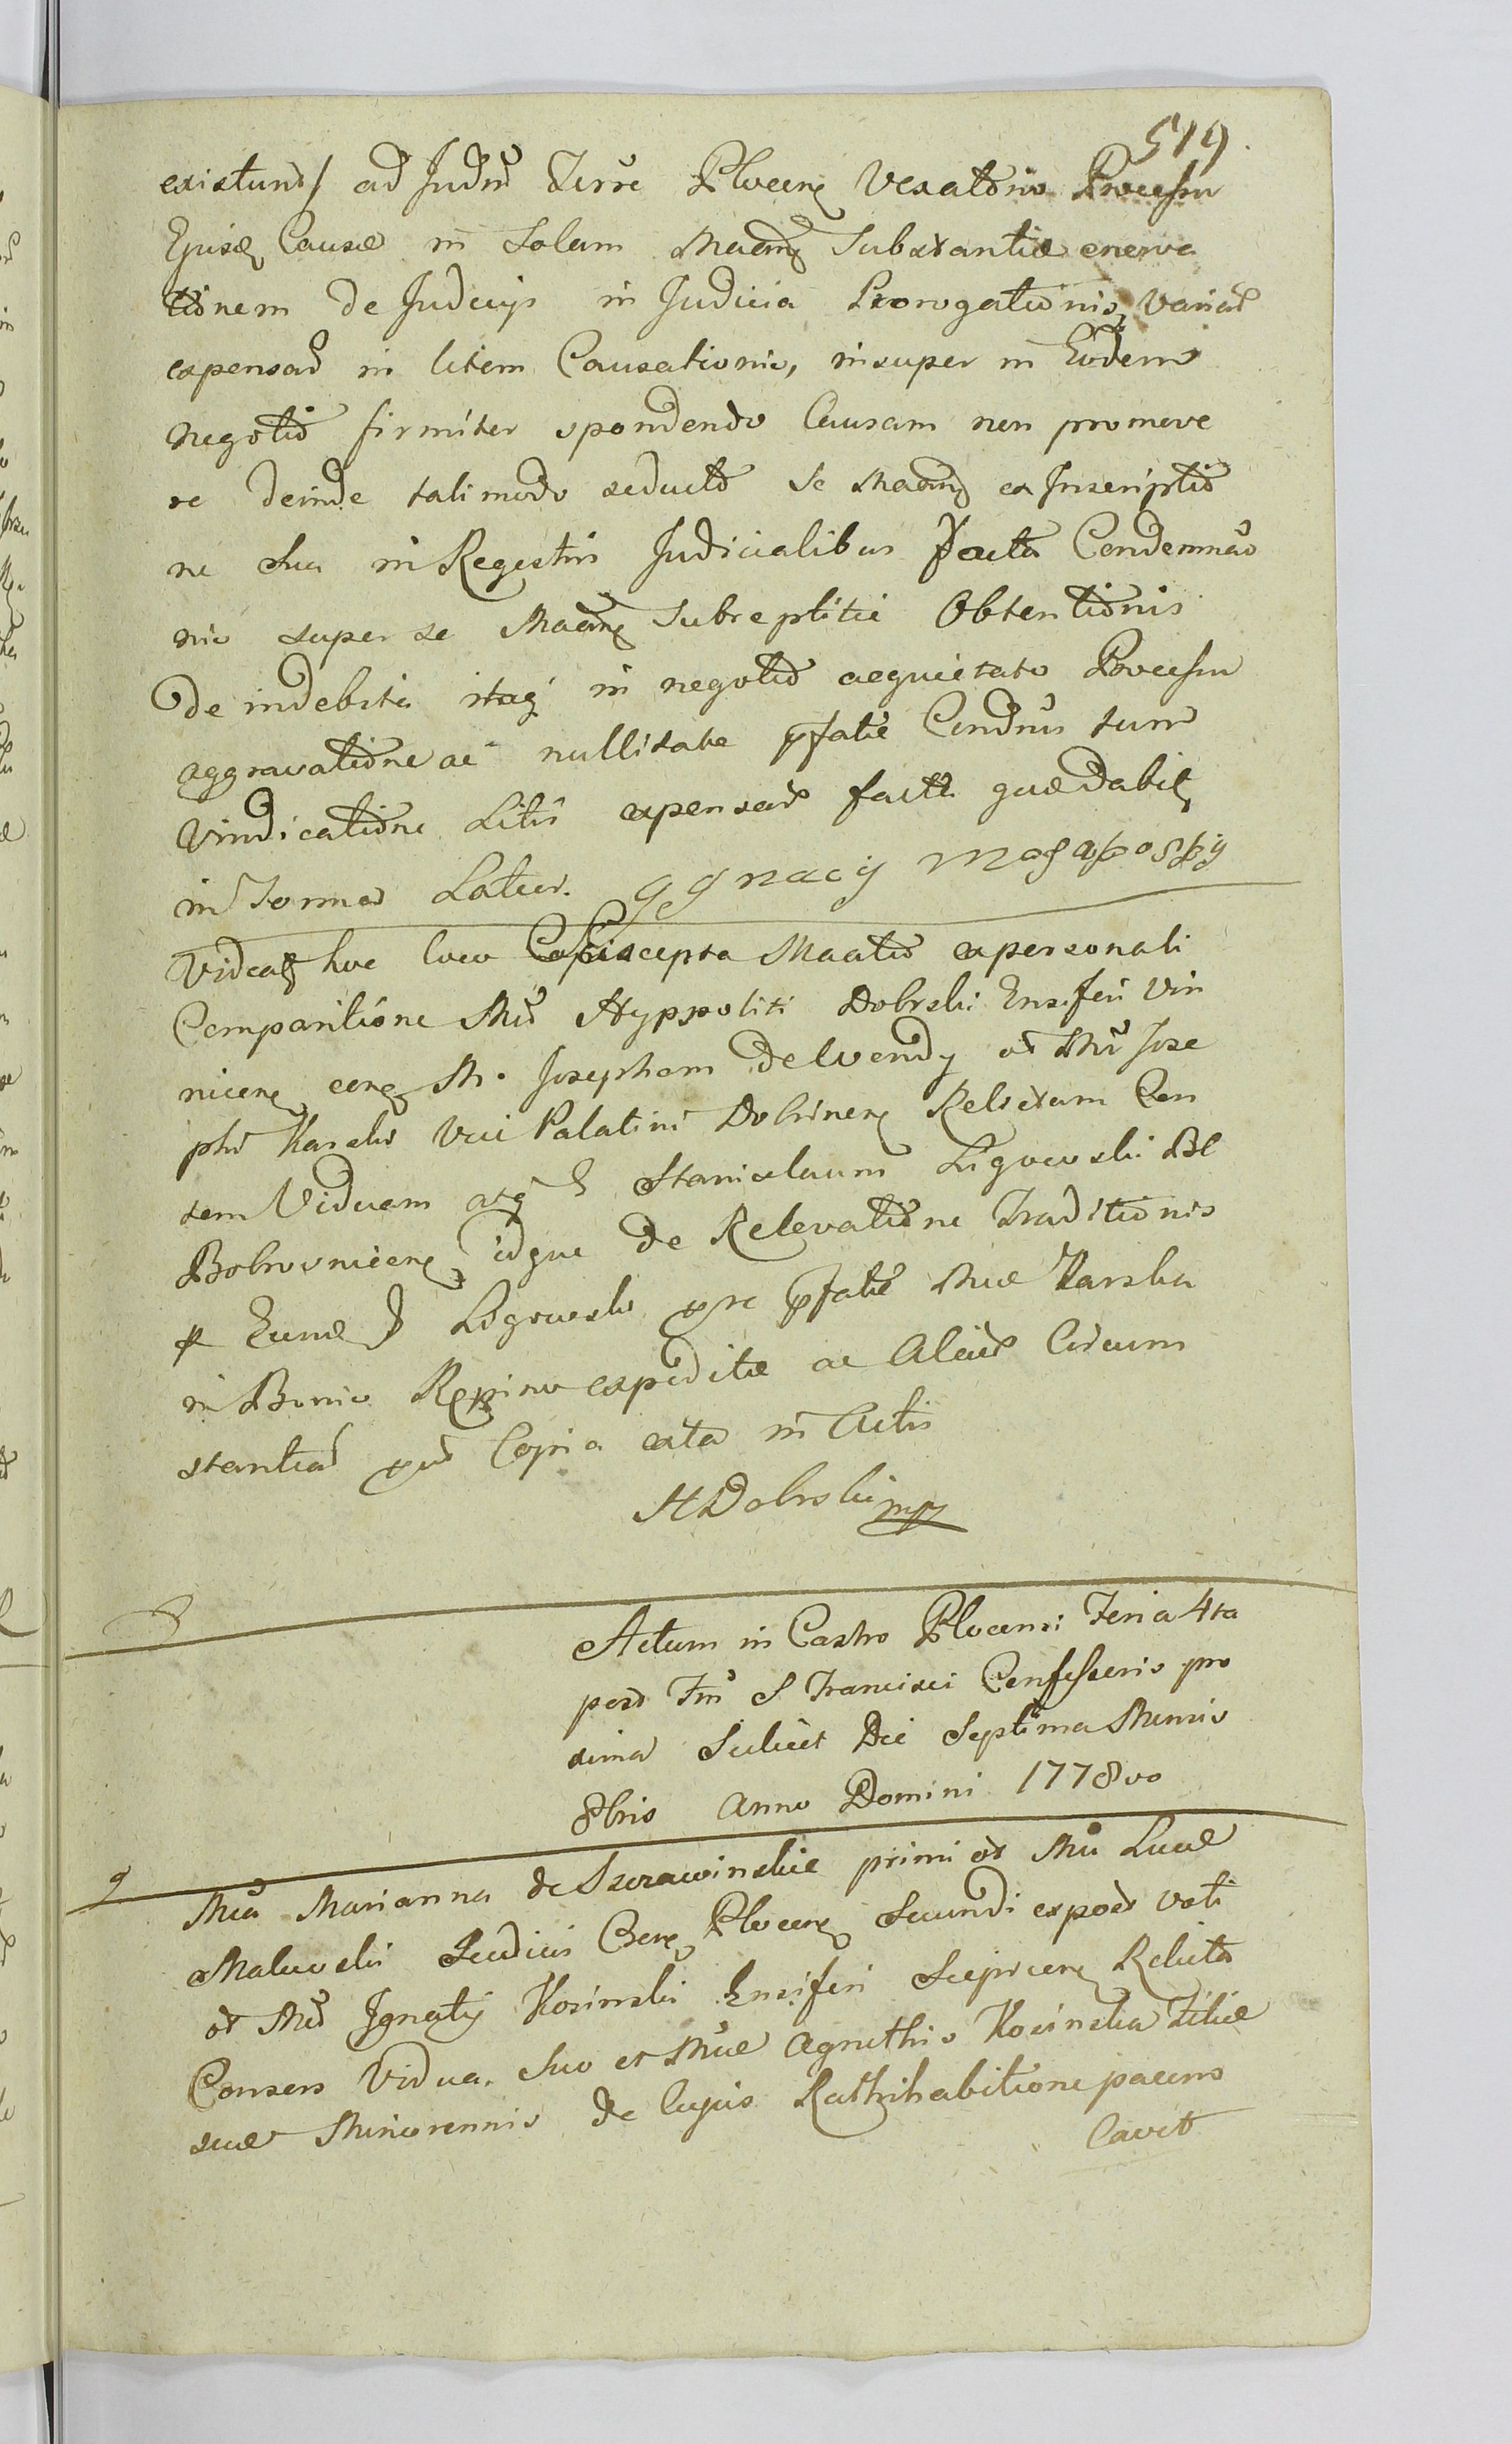 519.
existend/ ad Judm Terre Plocen Vexatorio Processu
Ejusq Causæ in Solam Maem Substantiæ enerva
tionem de Judicijs in Judicia Prorogationis, varias
expensas in litem Causationis, insuper in Eodem
negotio firmiter spondendo Causam non promove
re deinde talimodo seducto se Maem ex Inscriptio
ne sua in Registris Judicialibus facta Condemnao
nis super se Maem Subreptitie Obtentionis
De indebite itaq in negotio acquietato Processu
aggravatione ac nullitate pfatæ Condnis tum
Vindicatione Litis expensas factæ quæ dabit
in Termino Latius. Jgnacy
Videatq hoc loco Copia Maatio ex personali
Comparitione Mci Hyppoliti Dobrski Ensiferi Vin
nicen, cong M. Josepham Delwendy ot Mci Jose
phi Karski Vice Palatini Dobrinen Relictam Con
tem Viduam atq G Stanislaum Ligowski B C
Bobrovnicen, idque de Relevatione Traditionis
p Eund G Ligowski pro pfate Mcæ Karska
in Bonis Rępino expeditæ ac Alias Circum
stantias put Copia exta in Actis
HDobrski mp
Actum in Castro Plocensi Feria 4ta
post Fm S Francisci Confessoris pro
xima Scilicet Die Septima Mensis
8bris Anno Domini 1778vo
Mca Marianna de Szczawinskie primi ot Mci Lucæ
Malewski Judicis Cren Plocen, Secundi expost voti
ot Mci Jgnatij Kosinski Ensiferi Sieprcen Relicta
Consors Vidua. Suo et Mcæ Agnethis Kosinska Filiæ
suæ Minorennis de cujus Rathihabitione pacem
Cavet